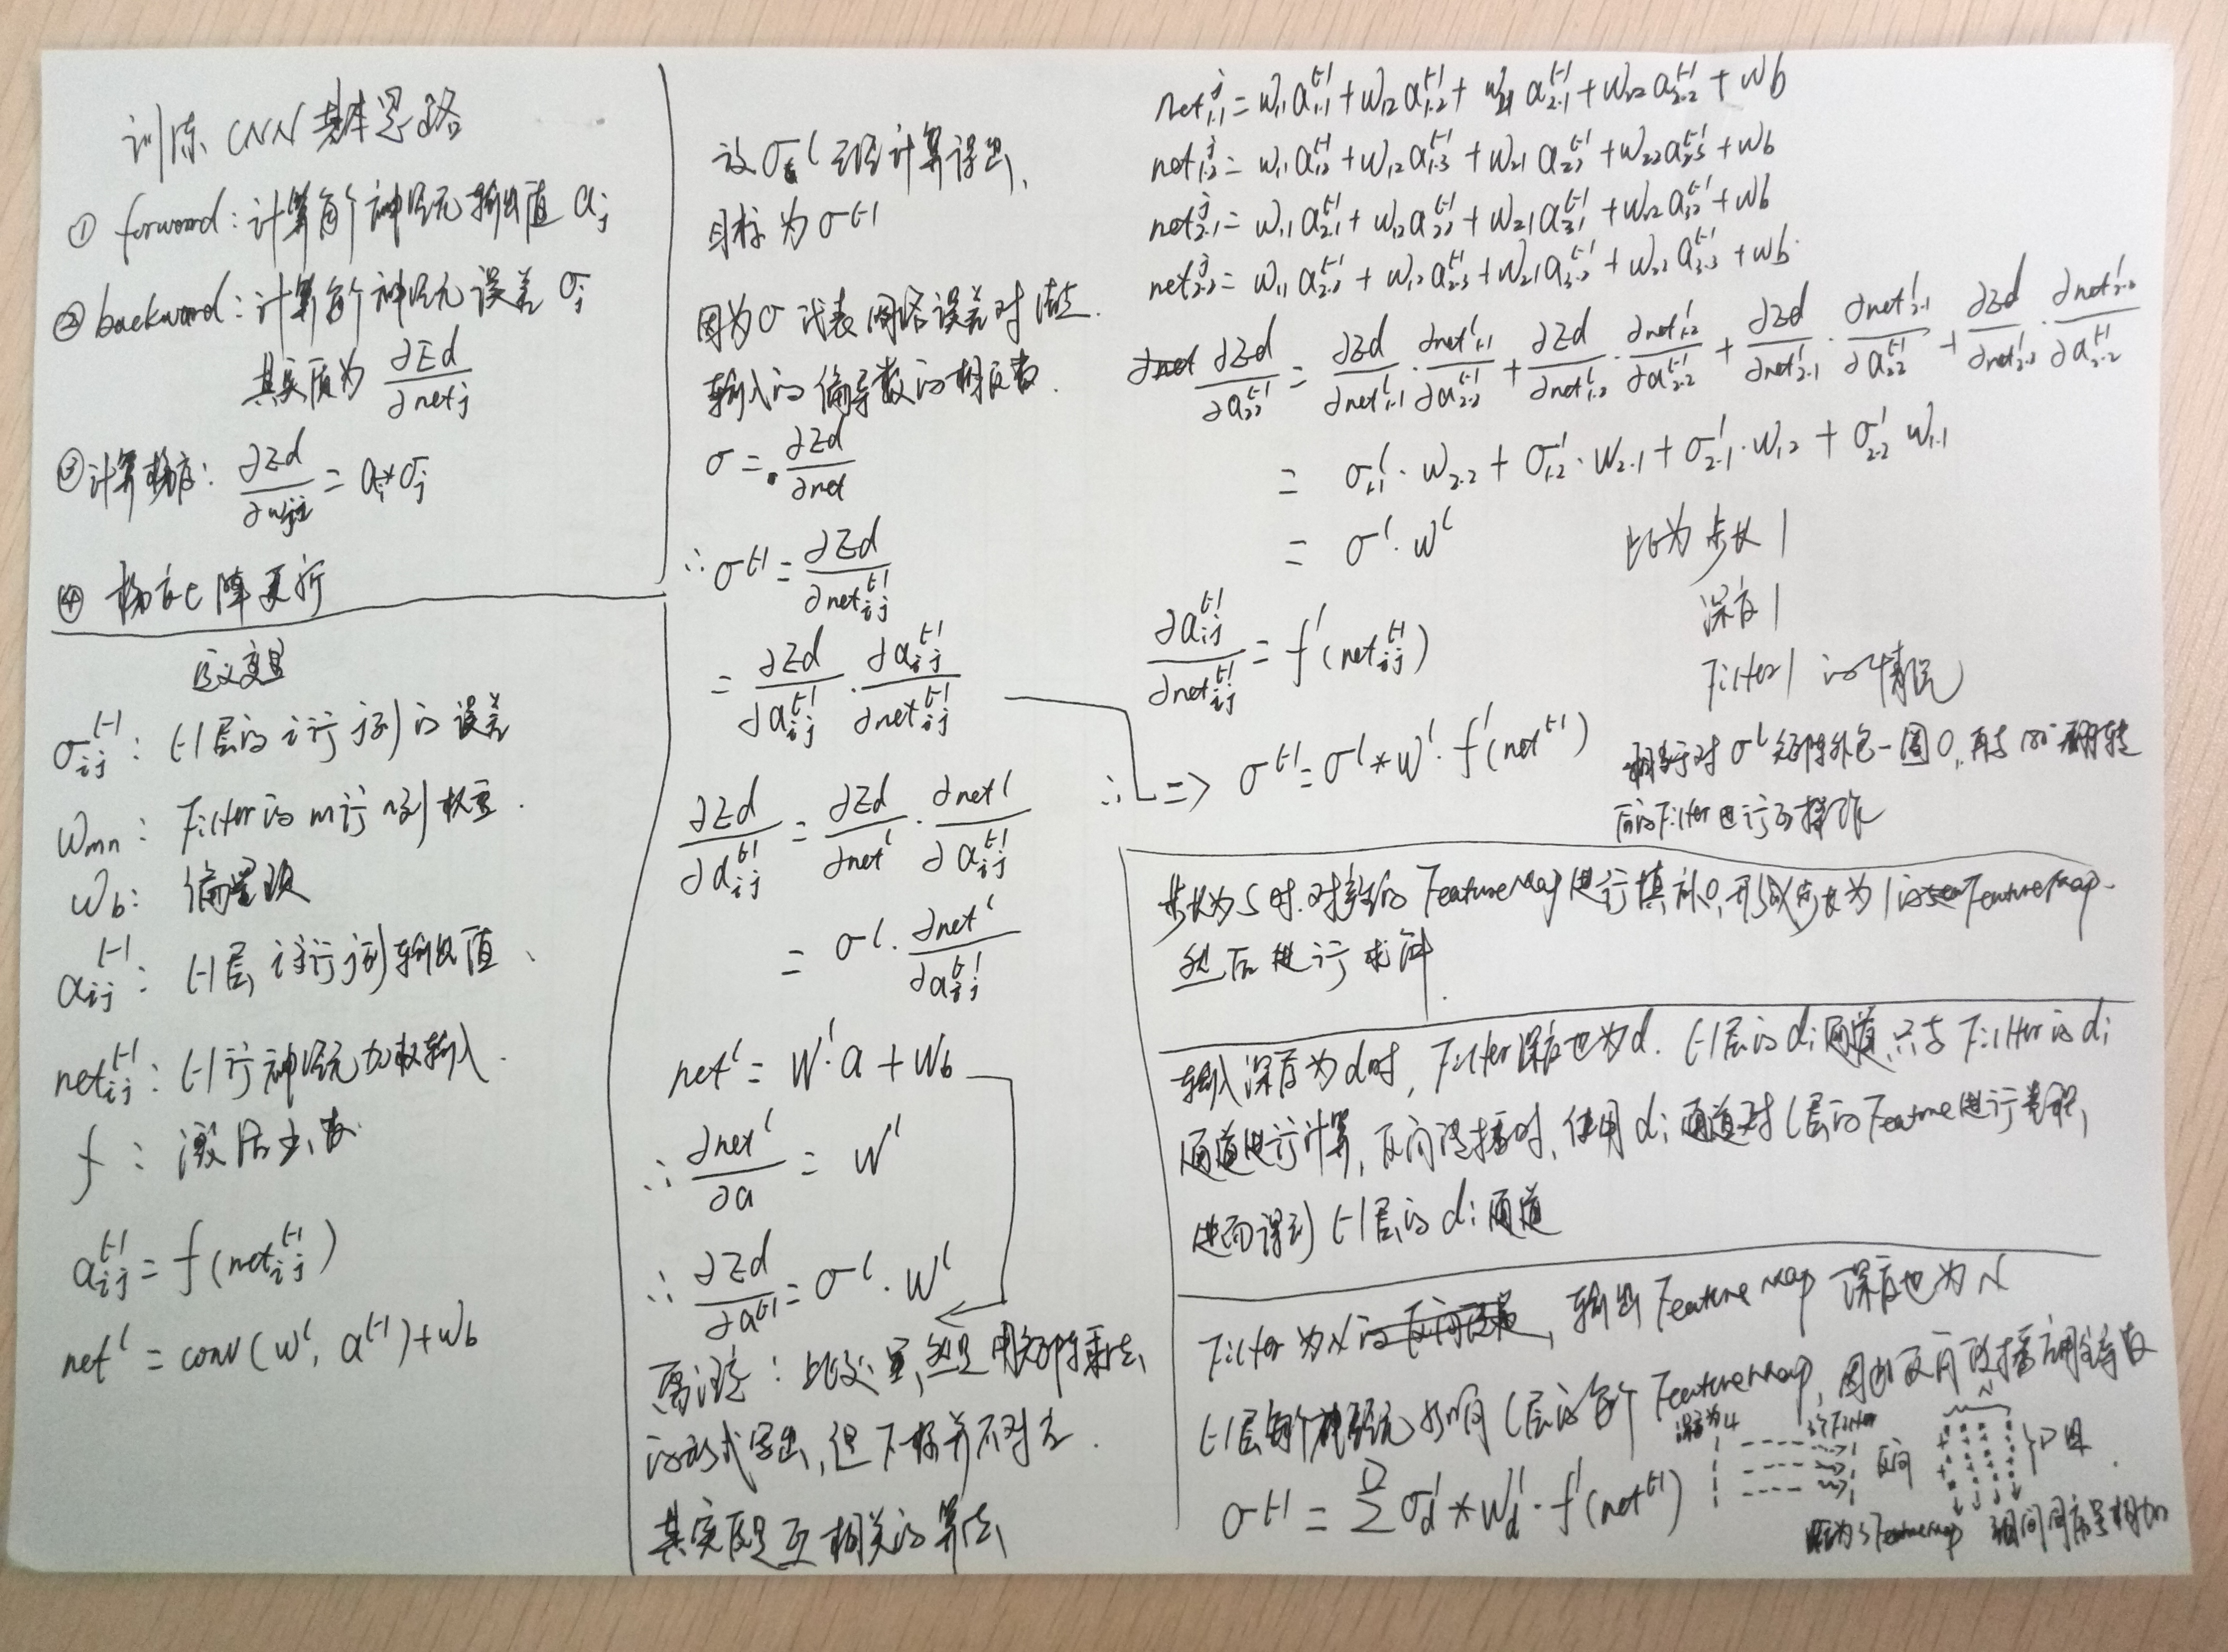 训练 CNN 基本思路
① forward: 计算每个神经元输出值 aj
② backward: 计算每个神经元误差 σj
其实质为 ∂Ed/∂netj
③ 计算梯度: ∂Ed/∂wji = ai*σj
④ 梯度下降更新
定义变量
σij^(l-1): l-1层的i行j列的误差
Wmn: Filter的m行n列权重.
Wb: 偏置项
aij^(l-1): l-1层i行j列输出值、
netij^(l-1): l-1行神经元加权输入.
f: 激活函数.
aij^(l-1) = f(netij^(l-1))
net^l = conv(W^l, a^(l-1)) + Wb
设σ^l 已经计算得出,
目标为 σ^(l-1)
因为σ代表网络误差对
输入的偏导数的相反数.
σ = ∂Ed/∂net
∴ σ^(l-1) = ∂Ed/∂netij^(l-1)
= ∂Ed/∂aij^(l-1) · ∂aij^(l-1)/∂netij^(l-1)
∂Ed/∂aij^(l-1) = ∂Ed/∂net^l · ∂net^l/∂aij^(l-1)
= σ^l · ∂net^l/∂aij^(l-1)
net^l = W^l·a + Wb
∴ ∂net^l/∂a = W^l
∴ ∂Ed/∂a^(l-1) = σ^l · W^l
需注意: 此处虽然是用矩阵乘法
的形式写出, 但下标并不对应.
其实质是互相关的算法
net1·1^j = W11 a1·1^(l-1) + W12 a1·2^(l-1) + W21 a2·1^(l-1) + W22 a2·2^(l-1) + Wb
net1·2^j = W11 a1·2^(l-1) + W12 a1·3^(l-1) + W21 a22^(l-1) + W22 a2·3^(l-1) + Wb
net2·1^j = W11 a2·1^(l-1) + W12 a22^(l-1) + W21 a31^(l-1) + W22 a32^(l-1) + Wb
net2·2^j = W11 a2·2^(l-1) + W12 a2·3^(l-1) + W21 a3·2^(l-1) + W22 a3·3^(l-1) + Wb
∂Ed/∂a22^(l-1) = ∂Ed/∂net1·1^l · ∂net1·1^l/∂a2·2^(l-1) + ∂Ed/∂net1·2^l · ∂net1·2^l/∂a2·2^(l-1) + ∂Ed/∂net2·1^l · ∂net2·1^l/∂a2·2^(l-1) + ∂Ed/∂net2·2^l · ∂net2·2^l/∂a2·2^(l-1)
= σ1·1^l · W2·2 + σ1·2^l · W2·1 + σ2·1^l · W1·2 + σ2·2^l W1·1
= σ^l · W^l
此为步长1
深度1
Filter 1 的情况
∂aij^(l-1)/∂netij^(l-1) = f'(netij^(l-1))
∴ => σ^(l-1) = σ^l * W^l · f'(net^(l-1))
相当于对σ^l矩阵外包一圈0, 再与180°翻转
后的Filter进行的操作
步长为S时, 对 FeatureMap进行填补0, 形成步长为1的FeatureMap.
然后进行求解
输入深度为d时, Filter深度也为d. l-1层的di通道只与Filter的di
通道进行计算, 反向传播时, 使用di通道对l层的Feature进行卷积,
进而得到l-1层的di通道
Filter为N, 输出Feature Map深度也为N
l-1层每个神经元影响l层的每个FeatureMap, 因此反向传播用全导数
σ^(l-1) = Σ^D σd^l * Wd^l · f'(net^(l-1))
深度为4
3个Filter
反向
N
D组